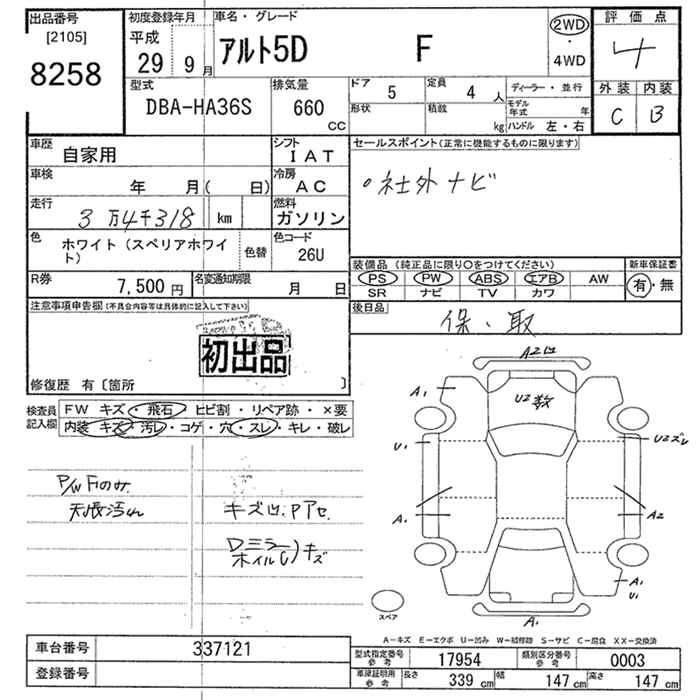 出品番号
[2105]
8258
初度登録年月
平成
29 9月
車名・グレード
アルト5D F
2WD
・
4WD
評価点
4
外装 内装
C B
型式
DBA-HA36S
排気量
660
CC
ドア 5
定員 4 人
形状
積載
kg
ディーラー・並行
モデル年式 年
ハンドル 左・右
車歴
自家用
シフト
IAT
車検
年 月( 日)
冷房
AC
走行
3万4千318 km
燃料
ガソリン
色
ホワイト(スペリアホワイト)
色替
色コード
26U
R券
7,500円
名変通知期限
月 日
セールスポイント(正常に機能するものに限ります)
○社外ナビ
装備品(純正品に限り○をつけてください)
PS PW ABS エアB AW
SR ナビ TV カワ
新車保証書
有・無
後日品
保、取
注意事項申告欄(不具合内容等は具体的に記入して下さい)
初出品
修復歴 有〔箇所 〕
検査員記入欄
FW キズ・飛石・ヒビ割・リペア跡・×要
内装 キズ・汚レ・コゲ・穴・スレ・キレ・破レ
P/W Fのみ
天張汚れ
キズ凹、Pアセ
Dミラー
ホイルC)キズ
A2凹
A1
U2数
U1
U2ズレ
A1
A2
A1
U1
A1
スペア
A-キズ E-エクボ U-凹み W-補修跡 S-サビ C-腐食 XX-交換済
車台番号 337121
登録番号
型式指定番号参考 17954
類別区分番号参考 0003
車庫証明用参考 長さ 339cm 幅 147cm 高さ 147cm